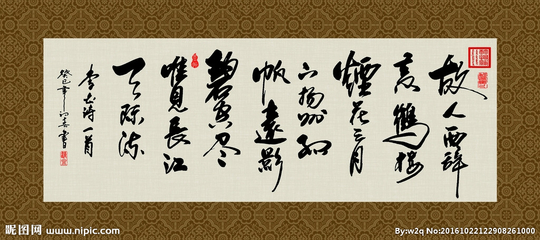 故人西辭
黃鶴樓
煙花三月
下揚州孤
帆遠影
碧空盡
唯見長江
天際流
李白詩一首
癸巳年
昵图网 www.nipic.com
By:w2q No:20161022122908261000